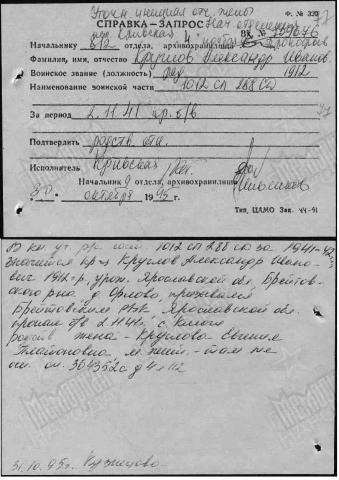 Уточн. инициал отч. жены
Ф. № 320
СПРАВКА – ЗАПРОС
Нач. отделения
Кривская
Вх. № 109676
Начальнику 6/2 отдела, архивохранилища
Фамилия, имя, отчество Круглов Александр Иванов.
Воинское звание (должность) ряд. 1912
Наименование воинской части 1012 сп 288 сд
За период 2.11.41 пр. б/в
Подтвердить родств. отн.
Исполнитель Кривская
Начальник 9 отдела, архивохранилища
30 октября 1995 г.
Тип. ЦАМО Зак. 44-91
В кн. уч. 1012 сп 288 сд за 1941-42г.
значится кр-ц Круглов Александр Ивано-
вич 1912 г.р., урож. Ярославской обл., Брейтов-
ского р-на, д. Орлово, призывался
Брейтовским РВК, Ярославской обл.
пропал б/в 2.11.41г., с.
родств жена - Круглова Евгения
Платоновна, м. жит. - там же
оп. 304352с д. 4 л. 112
31.10.95г. Кузнецова